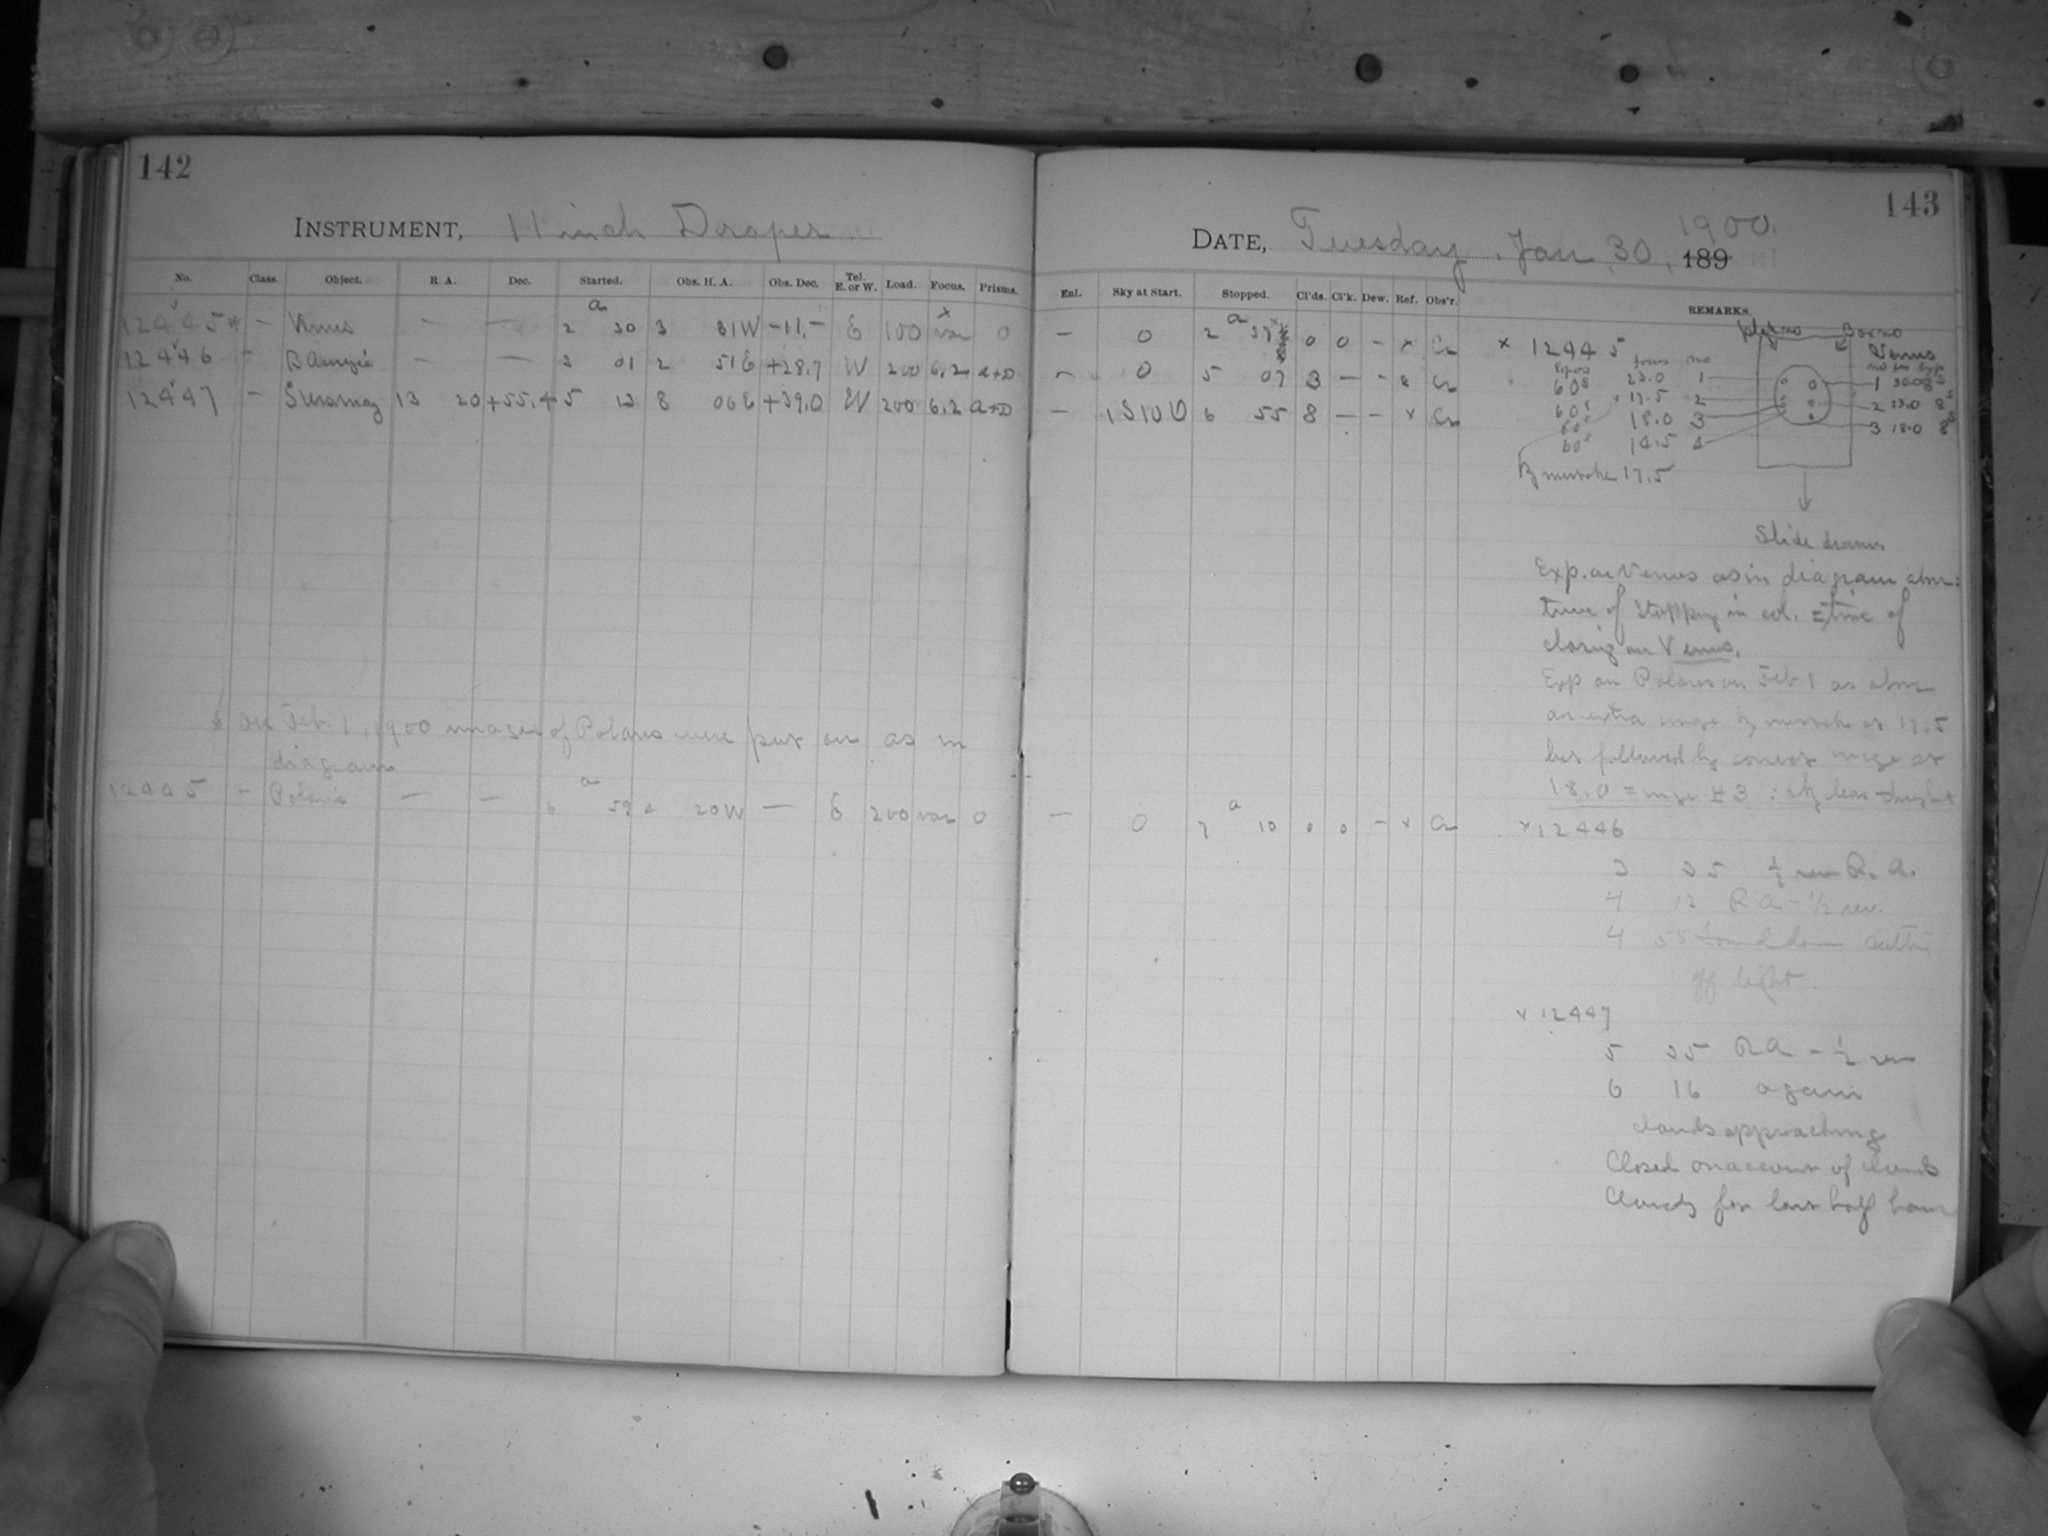 142
INSTRUMENT, 11 inch Draper
No. Class. Object. R. A. Dec. Started. Obs. H. A. Obs. Dec. Tel. E. or W. Load. Focus. Prisms.
12445* — Venus — — 2 a 30 3 31W -11.- E 100 var x 0
12446 — B Aurigae — — 3 01 2 51E +28.7 W 200 6.2
12447 — 13 20 +55.4 5 13 8 06E +39.0 W 200 6.2
* On Feb. 1, 1900 images of Polaris were put on as in
diagram
12445 — Polaris — — 6 a 59 4 20W — E 200 var 0
143
DATE, Tuesday, Jan 30, 1900. 189
Enl. Sky at Start. Stopped. Cl'ds. Cl'k. Dew. Ref. Obs'r. REMARKS.
— 0 2 a 37 0 0 — x
— 0 5 07 3 — — x
— 1S10U 6 55 8 — — x
— 0 7 a 10 0 0 — x
x 12445
Expos focus no
60s 23.0 1
60s x 17.5 2
60s 18.0 3
60s 14.5 4
By mistake 17.5
Venus
1 30.0 8s
2 23.0 8s
3 18.0 8s
Slide drawn
Exp. on Venus as in diagram above
time of stopping in col. = time of
closing on Venus.
Exp on Polaris on Feb 1 as above
an extra image by mistake at 17.5
but followed by correct image at
18.0 = image # 3
x 12446
3 35 1/2 rev R. A.
4 12 R A - 1/2 rev.
4 55 cutting
off light
x 12447
5 35 R A - 1/2 rev
6 16 again
clouds approaching
Closed on account of clouds
Cloudy for last half hour